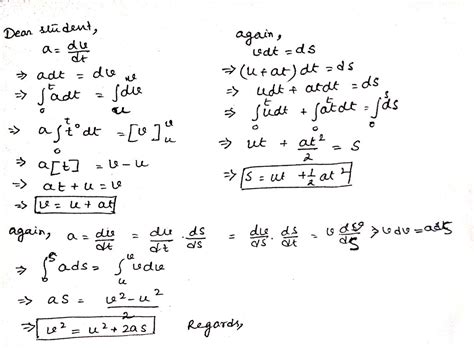 Dear student,
a = dv/dt
⇒ adt = dv
⇒ ∫₀ᵗ adt = ∫ᵤᵛ dv
⇒ a ∫₀ᵗ t° dt = [v]ᵤᵛ
⇒ a[t] = v - u
⇒ at + u = v
⇒ v = u + at
again,
vdt = ds
⇒ (u + at) dt = ds
⇒ udt + atdt = ds
⇒ ∫₀ᵗ udt + ∫₀ᵗ atdt = ∫₀ˢ ds
⇒ ut + at²/2 = s
⇒ s = ut + ½ at²
again, a = dv/dt = dv/dt · ds/ds = dv/ds · ds/dt = v dv/ds ⇒ vdv = ads
⇒ ∫₀ˢ ads = ∫ᵤᵛ vdv
⇒ as = v² - u²/2
⇒ v² = u² + 2as
Regards,